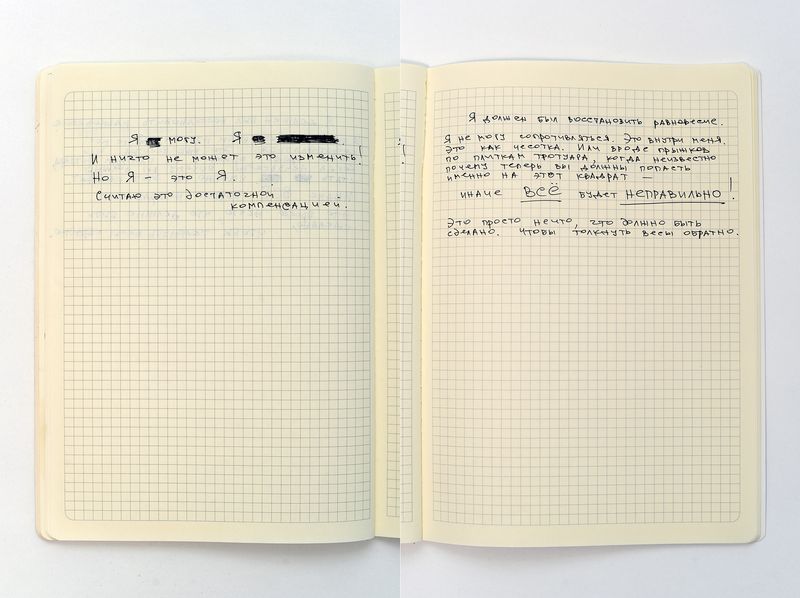 Я могу. Я .
И ничто не может это изменить!
Но Я – это Я.
Считаю это достаточной
компенсацией.
Я должен был восстановить равновесие.
Я не могу сопротивляться. Это внутри меня.
Это как чесотка. Или вроде прыжков
по плиткам тротуара, когда неизвестно
почему теперь вы должны попасть
именно на этот квадрат –
иначе ВСЁ будет НЕПРАВИЛЬНО!
Это просто нечто, что должно быть
сделано. Чтобы толкнуть весы обратно.